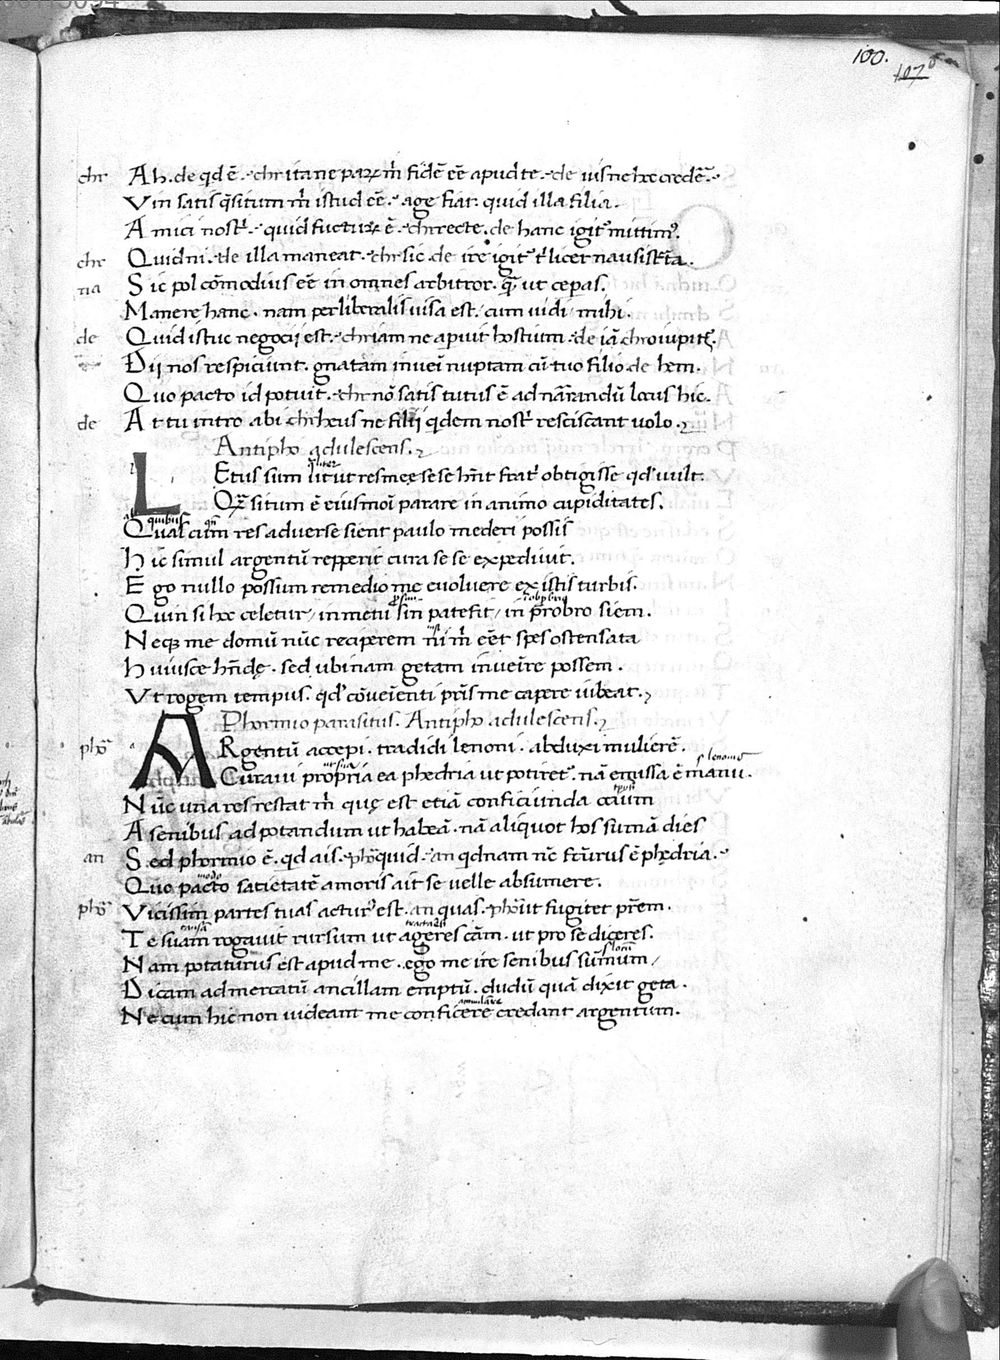 100.
107
chr Ah. de qd ē. chr itane parū m̄ fidē eē apud te. de uis ne hec credē.
Vin satis q̄situm m̄ istud eē. age fiat. quid illa filia.
Amici nostr̄. quid futurū ē. chr recte. de hanc igit᷑ mittim᷒.
chr Quid ni. de illa maneat. chr sic. de ire igit᷑ t̄ licet nausistrata.
na Sic pol cōmodius eē in omnes arbitror. q̄ ut ceperas.
Manere hanc. nam perliberalis uisa est. cum uidi mihi.
de Quid istuc negocij est. chr iam ne aperuit hostium. de iā chr o iupiter.
Dij nos respiciunt. gnatam inueni nuptam cū tuo filio. de hem.
Quo pacto id potuit. chr nō satis tutus ē ad narrandū locus hic.
de At tu intro abi. chr heus ne filii q̄dem nostr̄ resciscant uolo.
Antipho adulescens.
LEtus sum ut ut res meę sese hn̄t fratr̄ obtigisse qd̓ uult.
Q̄ situm ē eiusmoi parare in animo cupiditates.
quibus qn̄
Quas cum res aduerse sient paulo mederi possis
Hic simul argentū repperit cura se se expediuit.
Ego nullo possum remedio me euoluere ex istis turbis.
Quin si hoc celetur in metu sin patefit in ꝓbro siem.
Neq; me domū nūc reciperem ni m̄ eēt spes ostensata
Huiusce hn̄dę. sed ubi nam getam inuenire possem.
Vt rogem tempus. qd̓ cōueienti pr̄is me capere iubeat.
Phormio parasitus. Antipho adulescens.
phō ARgentū accepi. tradidi lenoni. abduxi mulierē.
lenonis
Curaui propria ea phedria ut potiret᷑. nā emissa ē manu.
Nūc una res restat m̄ quę est etiā conficiunda ocium
A senibus ad potandum ut habeā. nā aliquot hos sumā dies
an Sed phormio ē. qd ais. phō quid. an qdnam nc̄ fcturus ē phędria.
modo
Quo pacto satietatē amoris ait se uelle absumere.
phō Vicissim partes tuas actur᷒ est. an quas. phō ut fugitet pr̄em.
Te suam rogauit rursum ut ageres cām. ut pro se diceres.
Nam potaturus est apud me. ego me ire senibus sumum
Dicam ad mercatū ancillam emptū. dudū quā dixit geta.
Ne cum hic non uideant me conficere credant argentum.